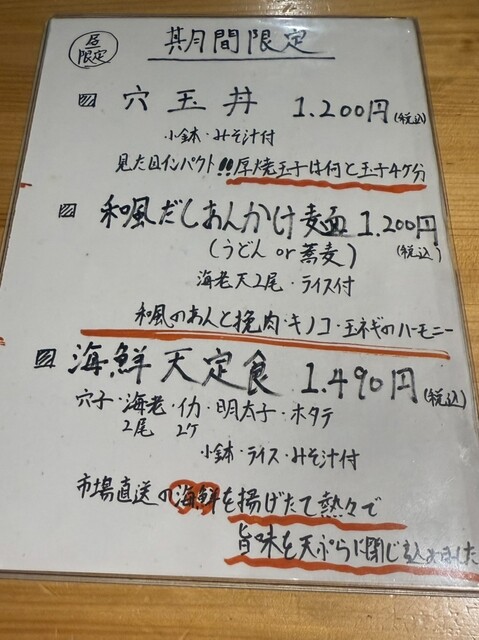 昼限定
期間限定
穴玉丼 1.200円(税込)
小鉢・みそ汁付
見た目インパクト!!厚焼玉子は何と玉子4ケ分
和風だしあんかけ麺 1.200円(税込)
(うどん or 蕎麦)
海老天2尾・ライス付
和風のあんと挽肉・キノコ・玉ネギのハーモニー
海鮮天定食 1.490円(税込)
穴子・海老2尾・イカ2ケ・明太子・ホタテ
小鉢・ライス・みそ汁付
市場直送の海鮮を揚げたて熱々で
旨味を天ぷらに閉じ込めました